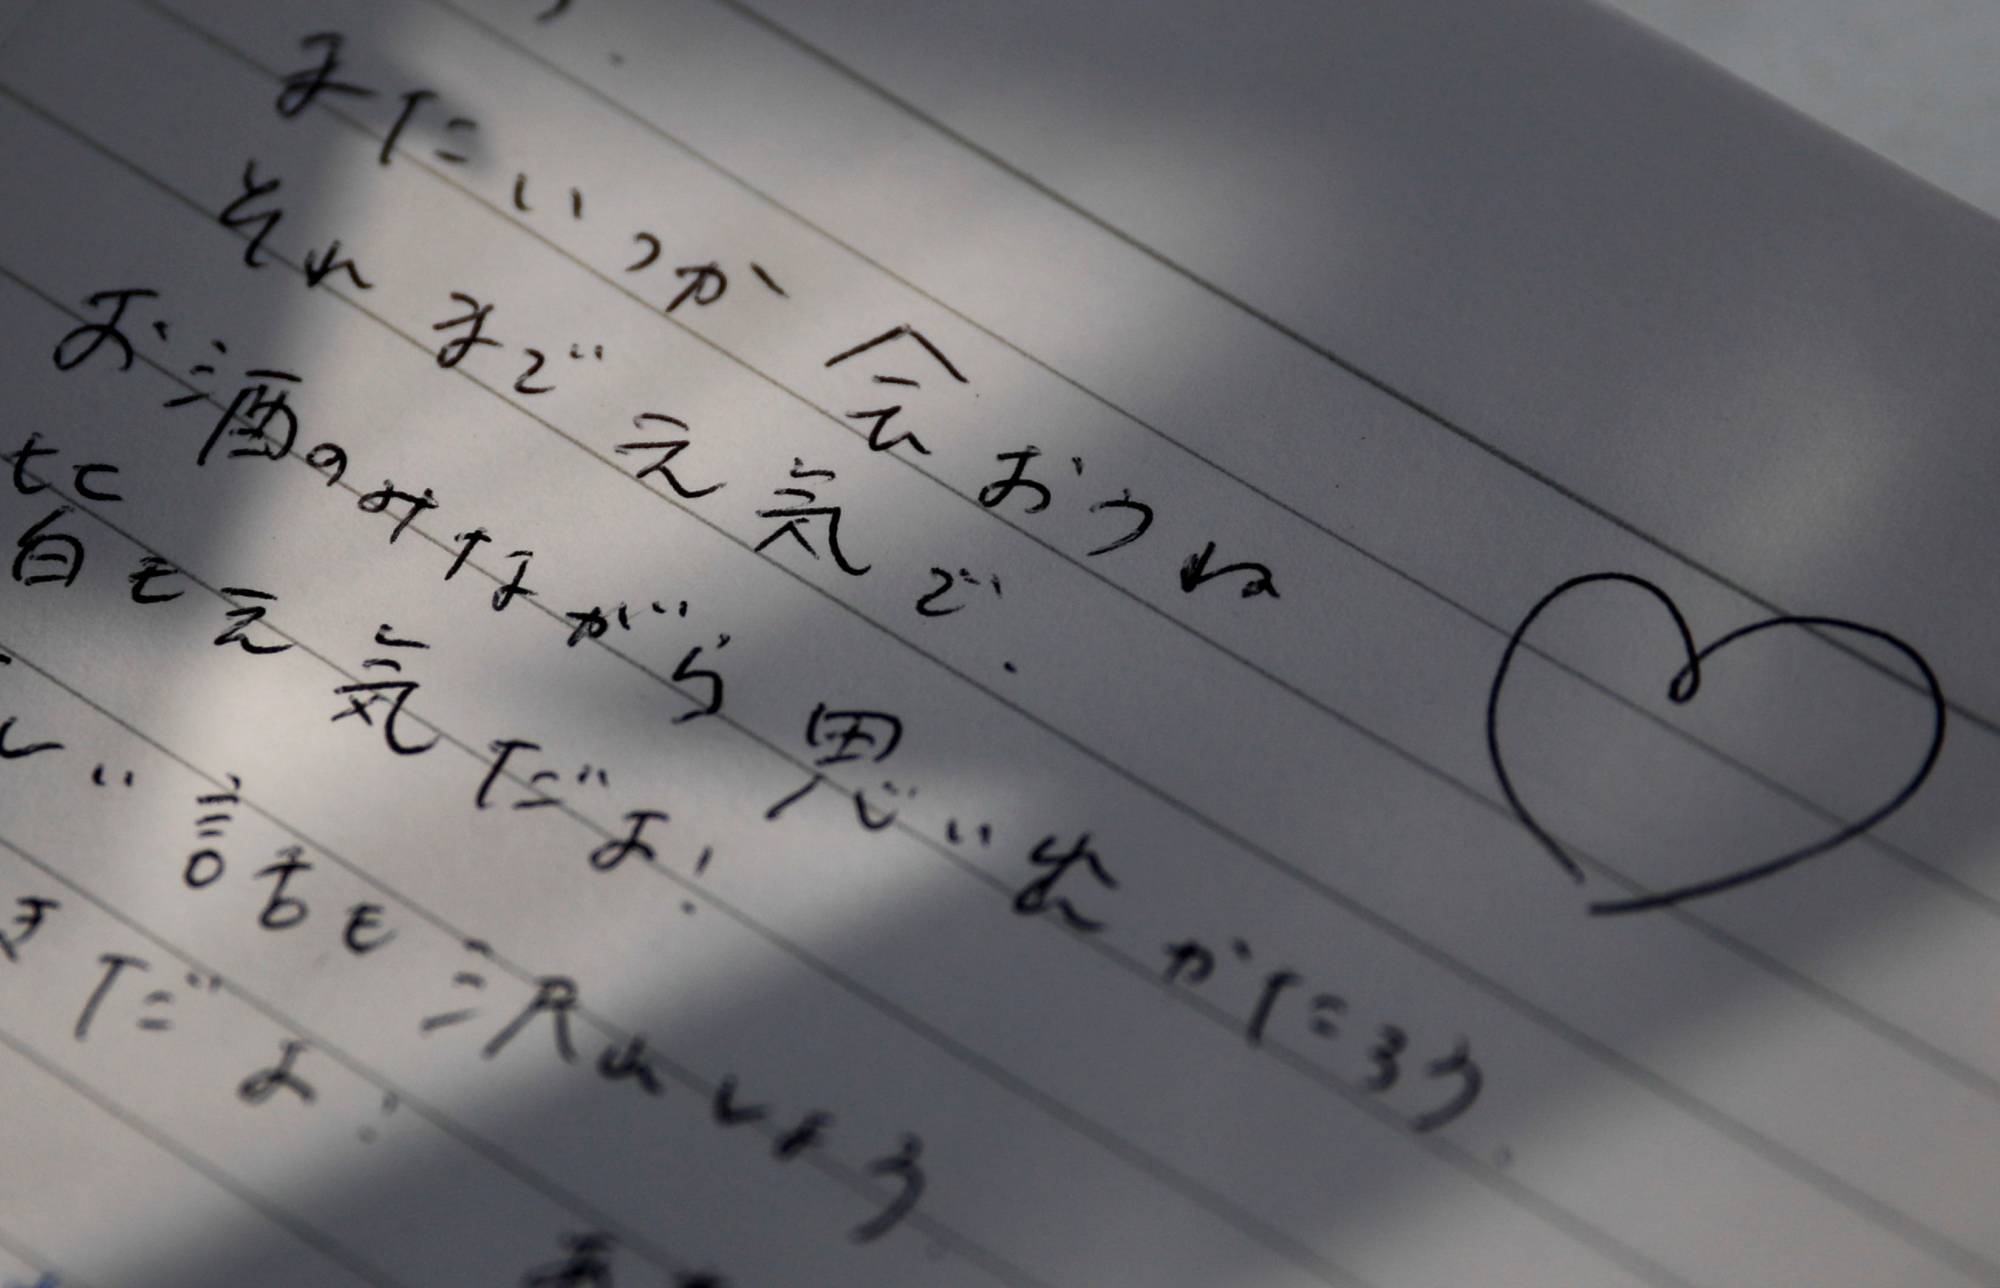 またいつか会おうね
それまで元気で.
お酒のみながら思い出かたろう。
皆も元気だよ!
しい話も沢山しよう。
きだよ!